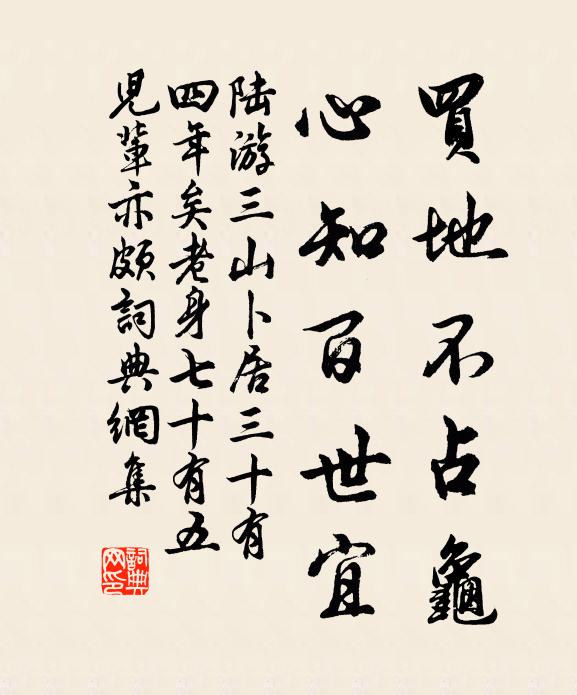 買地不占龜
心知百世宜
陸游三山卜居三十有
四年矣老身七十有五
児輩亦頗詞典網集
詞典
网印